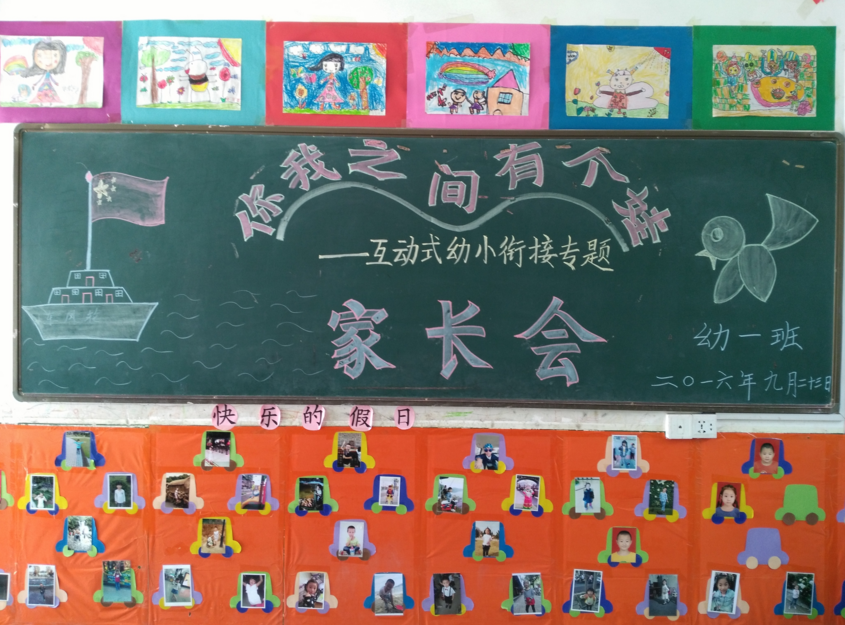 你我之间有个娃
——互动式幼小衔接专题
家长会
幼一班
二〇一六年九月二十三日
快乐的假日